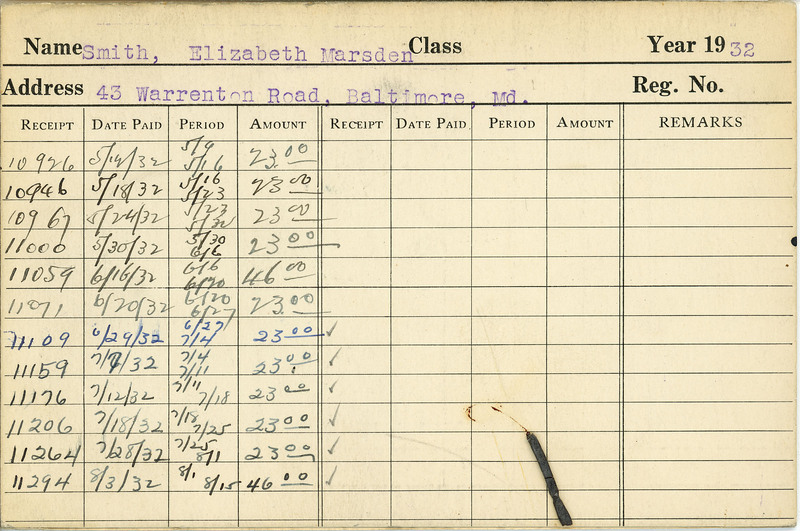 Name Smith, Elizabeth Marsden Class Year 1932
Address 43 Warrenton Road, Baltimore, Md. Reg. No.
RECEIPT DATE PAID PERIOD AMOUNT RECEIPT DATE PAID PERIOD AMOUNT REMARKS
10926 5/14/32 5/9 5/16 23.00
10946 5/18/32 5/16 5/23 23.00
10967 5/24/32 5/23 23.00
11000 5/30/32 5/30 6/6 23.00
11059 6/16/32 6/6 6/20 46.00
6/20/32 6/20 6/27 23.00
11109 6/29/32 6/27 7/4 23.00 ✓
11159 7/7/32 7/4 7/11 23.00 ✓
11176 7/12/32 7/11 7/18 23.00 ✓
11206 7/18/32 7/18 7/25 23.00 ✓
11264 7/28/32 7/25 8/1 23.00 ✓
11294 8/3/32 8/1 8/15 46.00 ✓